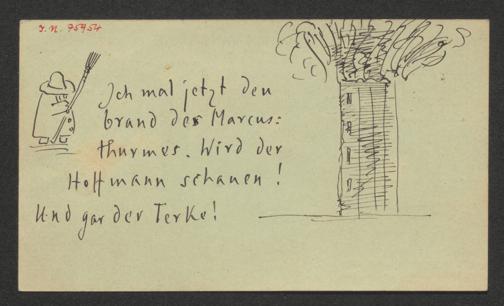 I.N. 75954
Ich mal jetzt den
brand des Marcus:
thurmes. Wird der
Hoffmann schauen!
Und gar der Terke!